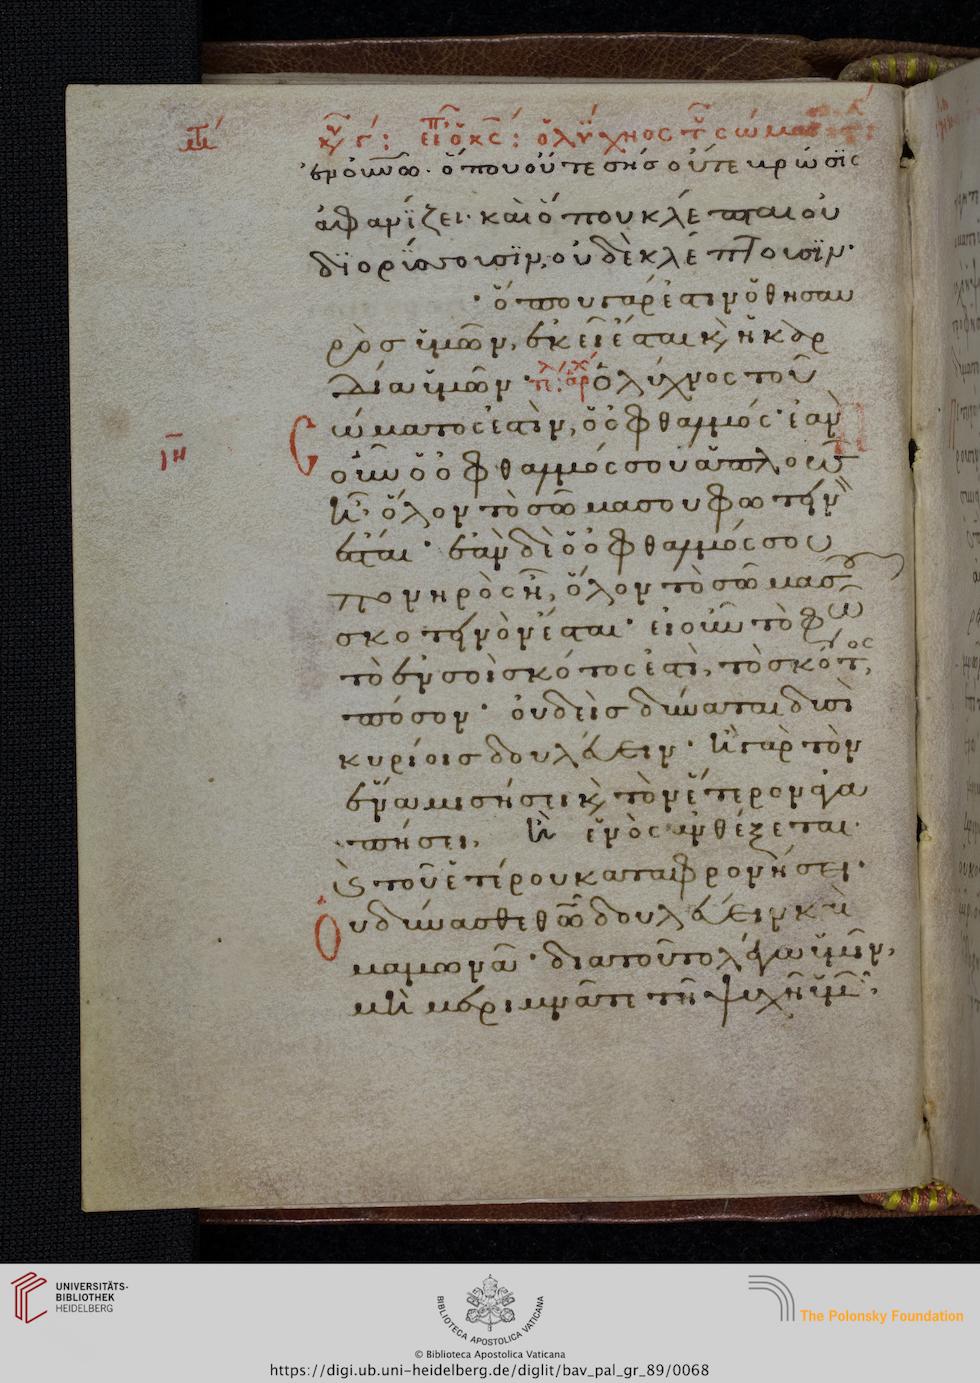 κυ γ: ειπ ο κς: ὁ λύχνος τ σώματ
ἐν οὐνω· ὅπου οὔτε σὴς οὔτε βρῶσϊς
ἀφανΐζει· καὶ ὅπου κλέπται οὐ
δϊορύσσουσϊν, οὐδὲ κλέπτουσϊν·
ὅπου γάρ ἐστιν ὁ θησαυ
ρὸς ὑμῶν, ἐκεῖ ἔσται κ ἡ καρ
δία ὑμῶν· Ὁ λύχνος τοῦ
σώματος ἐστὶν, ὁ ὀφθαλμός· ἐὰν
οὖν ὁ ὀφθαλμός σου ἁπλοῦς
ἦ· ὅλον τὸ σῶμα σου φωτεινὸν
ἔσται· ἐὰν δὲ ὁ ὀφθαλμός σου
πονηρὸς ἦ, ὅλον τὸ σῶμα σου
σκοτεινὸν ἔσται· εἰ οὖν τὸ φῶς
τὸ ἐν σοὶ σκότος ἐστὶ, τὸ σκότος,
πόσον· οὐδεὶς δύναται δυσὶ
κυρίοις δουλεύειν· ἢ γὰρ τὸν
ἕνα μισήσει κ τὸν ἕτερον ἀγα
πήσει, ἢ ἑνὸς ἀνθέξεται
κ τοῦ ἑτέρου καταφρονήσει·
Οὐ δύνασθε θῶ δουλεύειν καὶ
μαμωνᾶ· διατοῦτο λέγω ὑμῖν,
μὴ μεριμνᾶτε τῆ ψυχῆ ὑμ
ιη
UNIVERSITÄTS-
BIBLIOTHEK
HEIDELBERG
BIBLIOTECA APOSTOLICA VATICANA
© Biblioteca Apostolica Vaticana
The Polonsky Foundation
https://digi.ub.uni-heidelberg.de/diglit/bav_pal_gr_89/0068